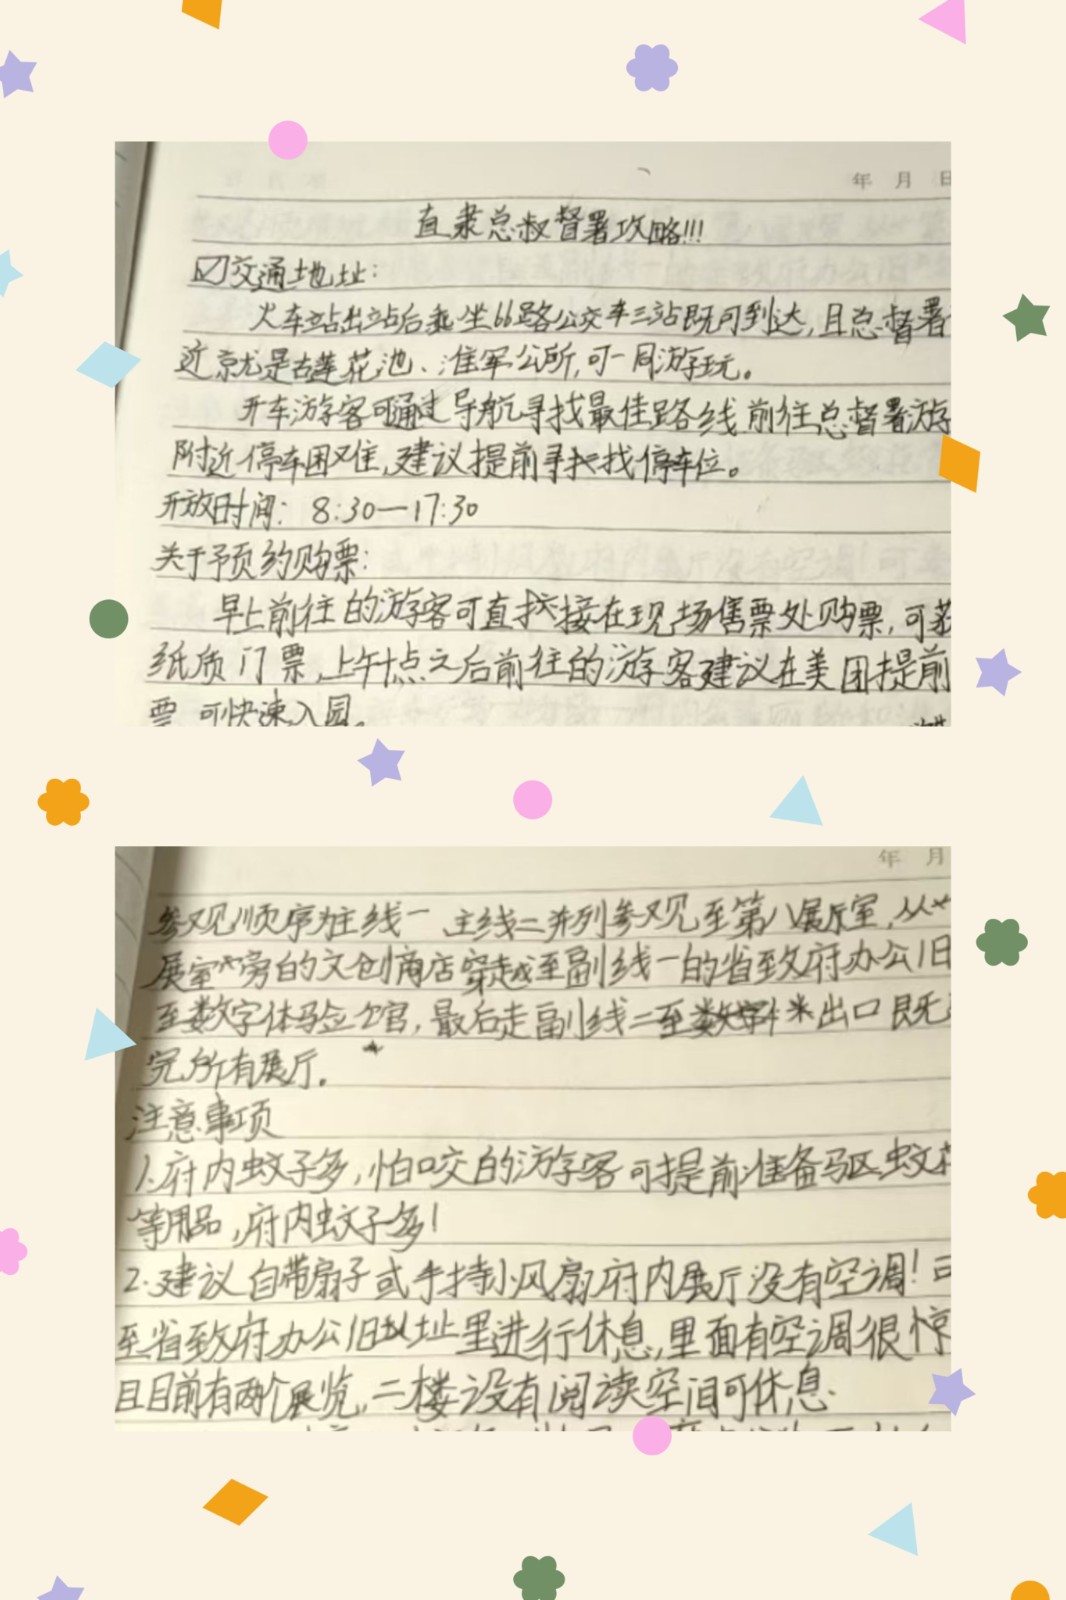 年 月 日
直隶总叔督署攻略!!!
☑交通地址：
火车站出站后乘坐66路公交车三站既可到达,且总督署
近就是古莲花池、淮军公所,可一同游玩。
开车游客可通过导航寻找最佳路线前往总督署游
附近停车困难,建议提前寻找停车位。
开放时间：8:30—17:30
关于预约购票：
早上前往的游客可直接在现场售票处购票,可
纸质门票,上午十点之后前往的游客建议在美团提前
票 可快速入园。
年 月
参观顺序为主线一 主线二并列参观至第八展厅室,从
展室旁的文创商店穿越至副线一的省政府办公旧
至数字体验公馆,最后走副线二至 出口既
完所有展厅。
注意事项
1.府内蚊子多,怕咬的游客可提前准备驱蚊
等用品,府内蚊子多!
2.建议自带扇子或手持小风扇府内展厅没有空调!可
至省政府办公旧址里进行休息,里面有空调很惊
且目前有两个展览,二楼设有阅读空间可休息.